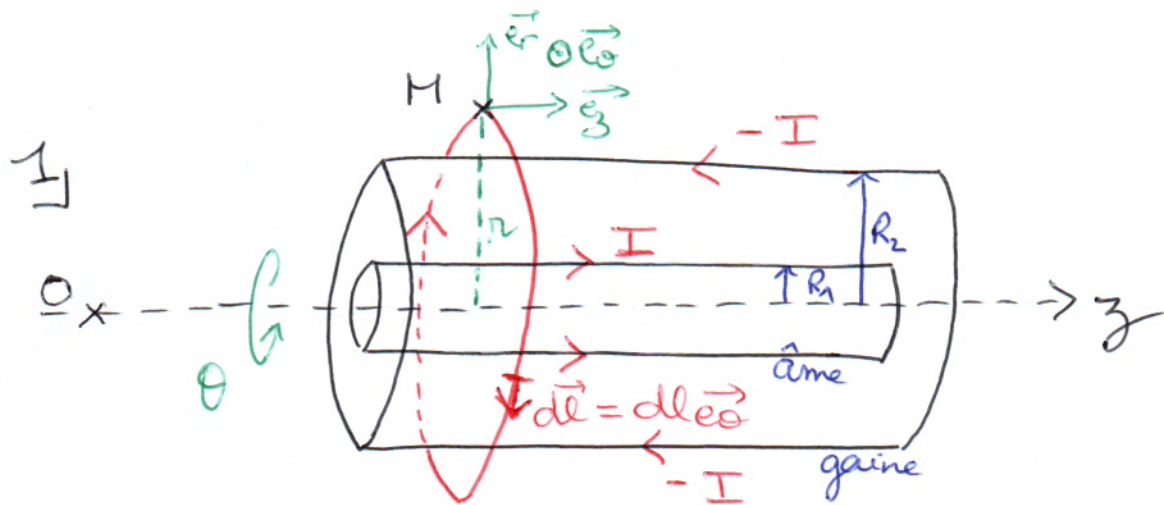 e⃗r ⊙ e⃗θ
M
e⃗z
-I
1]
r
I
R2
R1
O
z
θ
âme
d⃗l = dl e⃗θ
gaine
-I